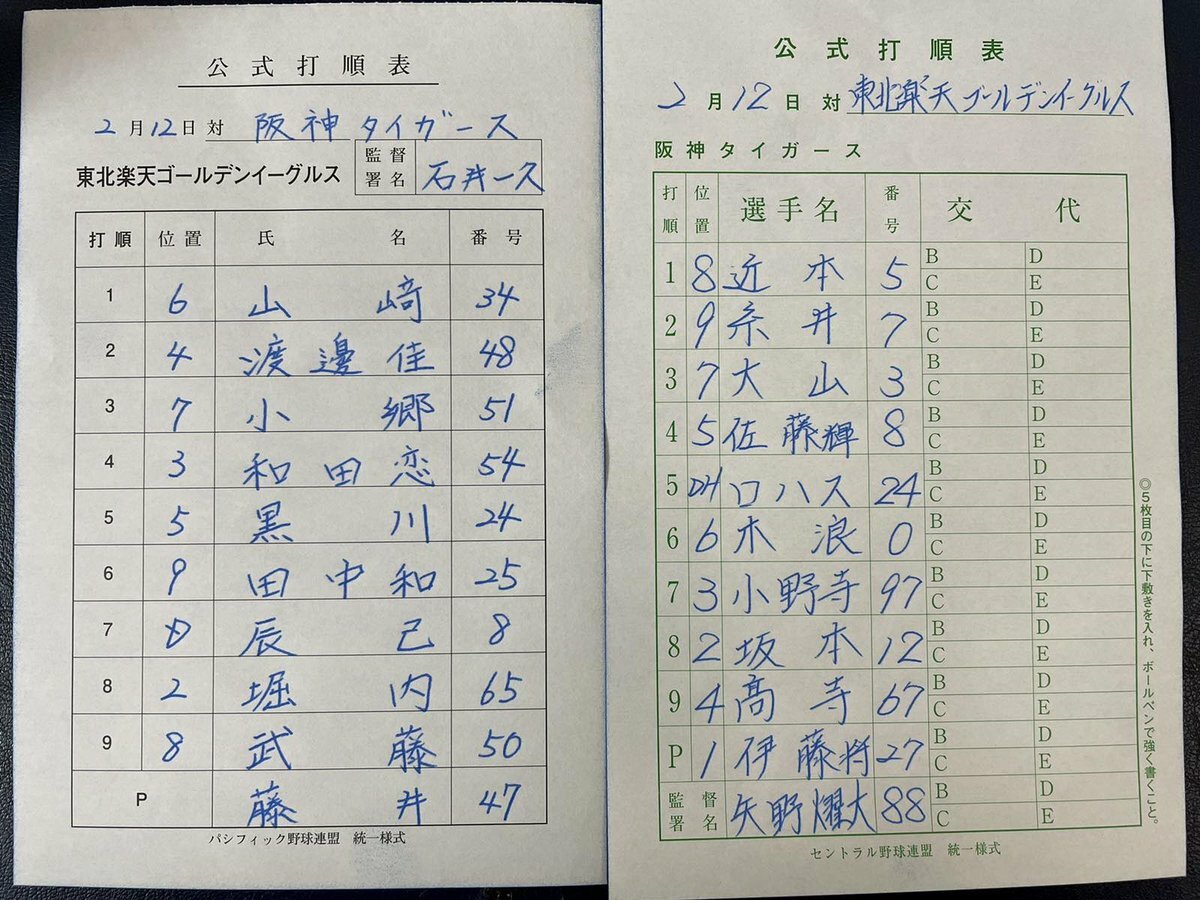 公式打順表
2月12日 対 阪神タイガース
東北楽天ゴールデンイーグルス 監督署名 石井一久
打順 位置 氏名 番号
1 6 山﨑 34
2 4 渡邊佳 48
3 7 小郷 51
4 3 和田恋 54
5 5 黒川 24
6 9 田中和 25
7 D 辰己 8
8 2 堀内 65
9 8 武藤 50
P 藤井 47
パシフィック野球連盟 統一様式
公式打順表
2月12日 対 東北楽天ゴールデンイーグルス
阪神タイガース
打順 位置 選手名 番号 交代
1 8 近本 5 B D
C E
2 9 糸井 7 B D
C E
3 7 大山 3 B D
C E
4 5 佐藤輝 8 B D
C E
5 DH ロハス 24 B D
C E
6 6 木浪 0 B D
C E
7 3 小野寺 97 B D
C E
8 2 坂本 12 B D
C E
9 4 髙寺 67 B D
C E
P 1 伊藤将 27 B D
C E
監督署名 矢野燿大 88 B D
C E
セントラル野球連盟 統一様式
◎5枚目の下に下敷きを入れ、ボールペンで強く書くこと。